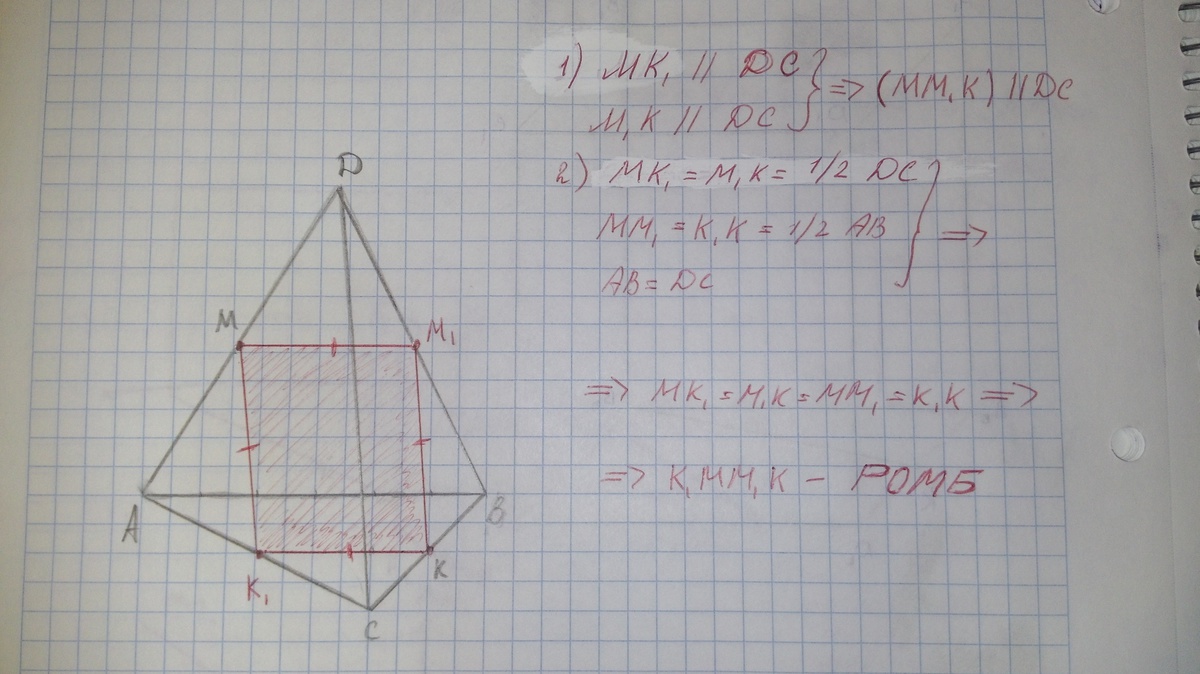 1) MK₁ // DC } => (MM₁K) // DC
M₁K // DC
2) MK₁ = M₁K = 1/2 DC
MM₁ = K₁K = 1/2 AB } =>
AB = DC
=> MK₁ = M₁K = MM₁ = K₁K =>
=> K₁MM₁K – РОМБ
D
M
M₁
A
B
K₁
K
C